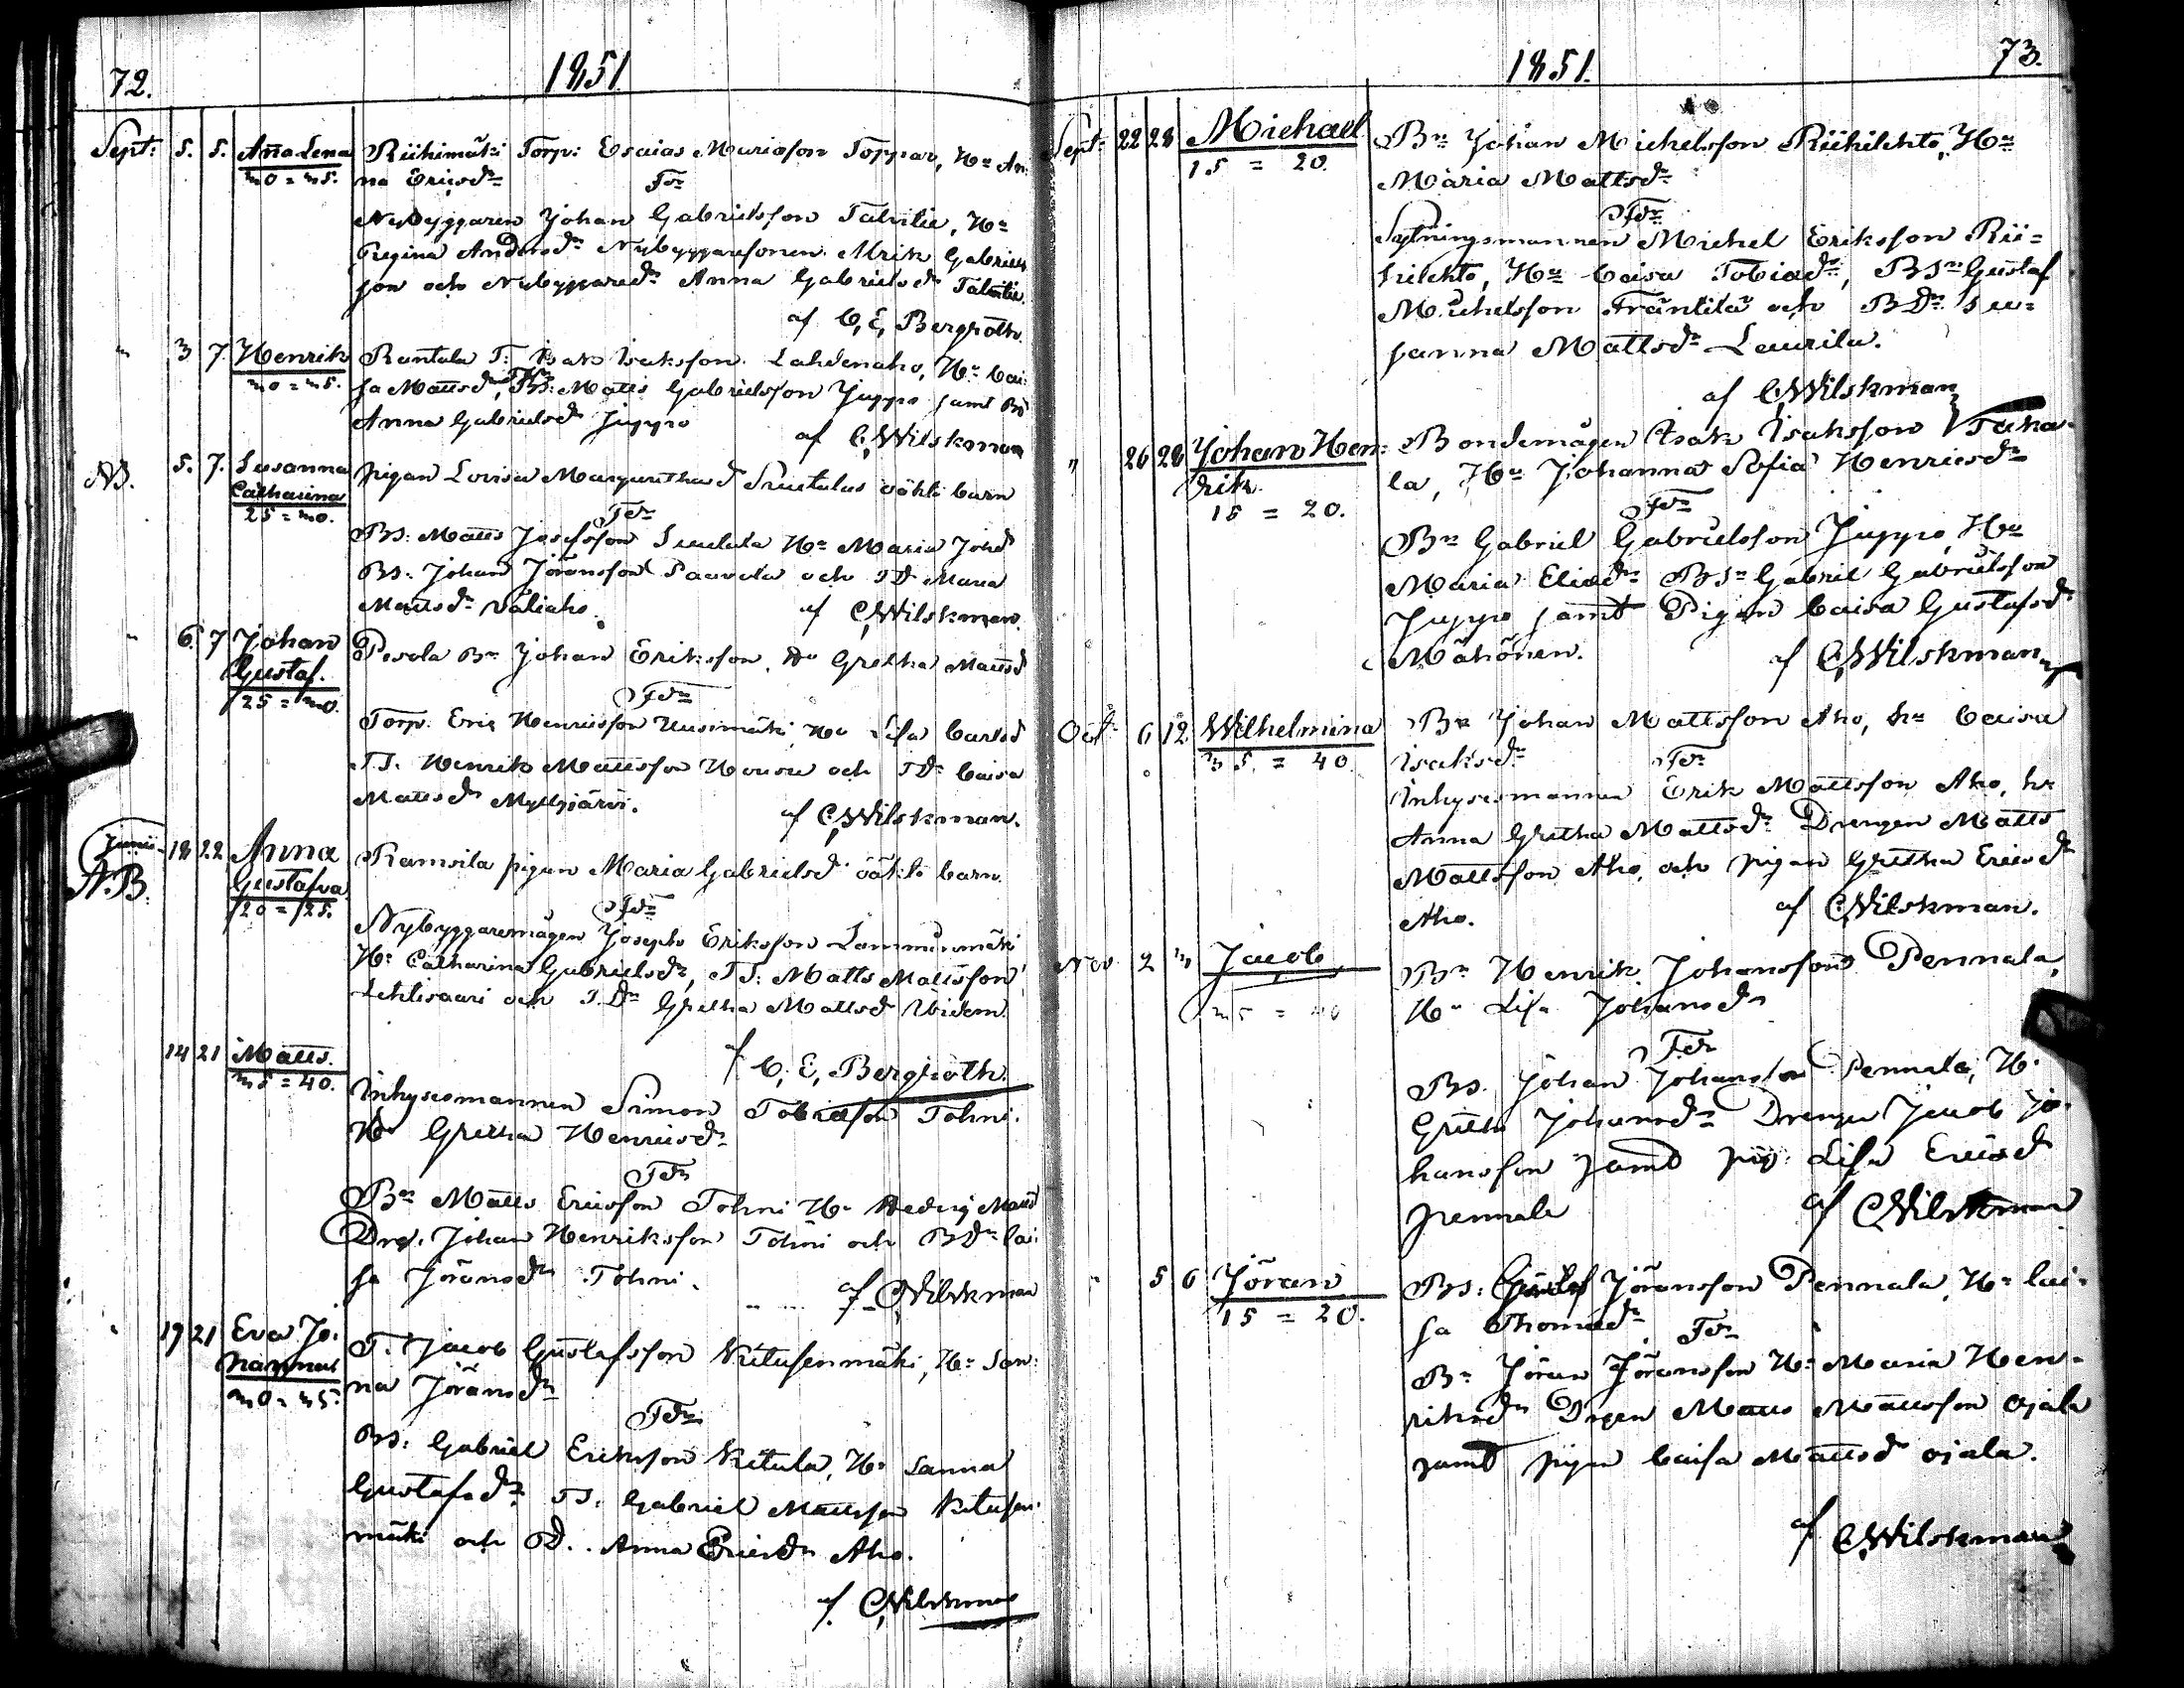 72.
1851.
Sept: 5. 5. Anna Lena Riihimäki Torp: Esaias Mariæson Toppar, Hu An-
20 = 25. na Ericsdr
Fdr
Nybyggaren Johan Gabrielsson Talvitie, Hu
Regina Andersdr Nybyggaresonen Alrik Gabriels
son och Nybyggaredr Anna Gabrielsdr Talvitie.
af C. E. Bergroth.
" 3 7. Henrik Rantala T: Isak Isaksson Lahdenaho, Hu Cai-
20 = 25. sa Mattsdr, Fdr BS: Matts Gabrielsson Juppo samt BD
Anna Gabrielsd Juppo
af C Wilskman
AB. 5. 7. Susanna pigan Lovisa Margarethasd oäkta barn
Catharina
25 = 30. Fdr
BS: Matts Josefsson Hu Maria Johsd
BS: Johan Jöransson Paavola och TD Maria
Mattsdr Väliaho. af C Wilskman.
" 6. 7 Johan Pesola Bn Johan Eriksson, Hu Gretha Mattsd
Gustaf.
25 = 30. Fdr
Torp. Eric Henricsson Uusimäki, Hu Lisa Carlsd
TS. Henrik Mattsson och TDr Caisa
Mattsdr Myllyjärvi.
af C Wilskman.
Junii 18 22 Anna Ranvila pigan Maria Gabrielsd oäkta barn.
AB. Gustafva
20 = 25. Fdr
Nybyggaremågen Joseph Eriksson Lamminmäki
Hu Catharina Gabrielsdr, TS: Matts Mattsson
Lehtisaari och T.Dr Gretha Mattsd Ibidem
af C. E. Bergroth.
14 21 Matts.
35 = 40. Inhysesmannen Simon Tobiasson Tohni.
Hu Gretha Henricsdr
Fdr
Bn Matts Ericsson Tohni Hu Hedvig Mattsd
Drg. Johan Henriksson Tohni och BDr Cai-
sa Jöransdr Tohni.
af C Wilskman
" 19 21 Eva Jo- T. Jacob Gustafsson Kitusenmäki, Hu San-
hanna na Jöransdr
20 = 25. Fdr
BS: Gabriel Eriksson Kitula, Hu Sanna
Gustafsdr TS: Gabriel Mattsson Kitusen-
mäki och D. Anna Ericsdr Aho.
af C Wilskman
1851.
73.
Sept: 22 28 Michael Bn Johan Michelsson Riihilehto, Hu
15 = 20. Maria Mattsdr
Fdr
Sytningsmannen Michel Eriksson Rii=
hilehto, Hu Caisa Tobiædr, BSn Gustaf
Michelsson Fräntilä och BDr Su=
sanna Mattsdr Laurila.
af C Wilskman
" 26 28 Johan Hen- Bondemågen Isak Isaksson Taka-
rik la, Hu Johanna Sofia Henricsdr
15 = 20. Fdr
Bn Gabriel Gabrielsson Juppo, Hu
Maria Eliædr BSn Gabriel Gabrielsson
Juppo samt Pigan Caisa Gustafsdr
Mähönen. af C Wilskman
Oct: 6 12 Wilhelmina Bn Johan Mattsson Aho, hu Caisa
35 = 40 Isaksdr Fdr
Inhysesmannen Erik Mattsson Aho, hu
Anna Gretha Mattsdr Drengen Matts
Mattsson Aho, och pigan Gretha Ericsdr
Aho. af C Wilskman.
Nov 2 3 Jacob Bn Henrik Johansson Pennala,
35 = 40 Hu Lisa Johansdr
Fdr
BS. Johan Johansson Pennala, H.
Gretha Johansdr Drengen Jacob Jo-
hansson samt pig: Lisa Ericsd
Pennala af C Wilskman
" 5 6 Jöran BS: Gustaf Jöransson Pennala, Hu Cai-
15 = 20. sa Thomædr Fdr
Bn Jöran Jöransson Hu Maria Hen-
riksdr Drgen Matts Mattsson Ojala
samt pigan Caisa Mattsdr Ojala.
af C Wilskman